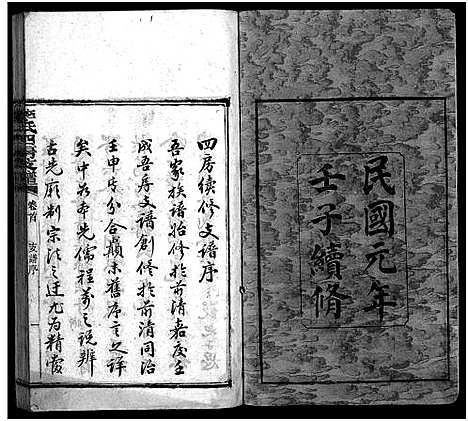 民國元年
壬子續修
四房續修支譜序
吾家族譜始修於前清嘉慶壬
戌吾房支譜創修於前清同治
壬申其分合顛末舊序言之詳
矣中並本先儒程子之說辨
古先廟制宗法之迁尤为精覈
氏四房支譜
卷首
支譜序
一